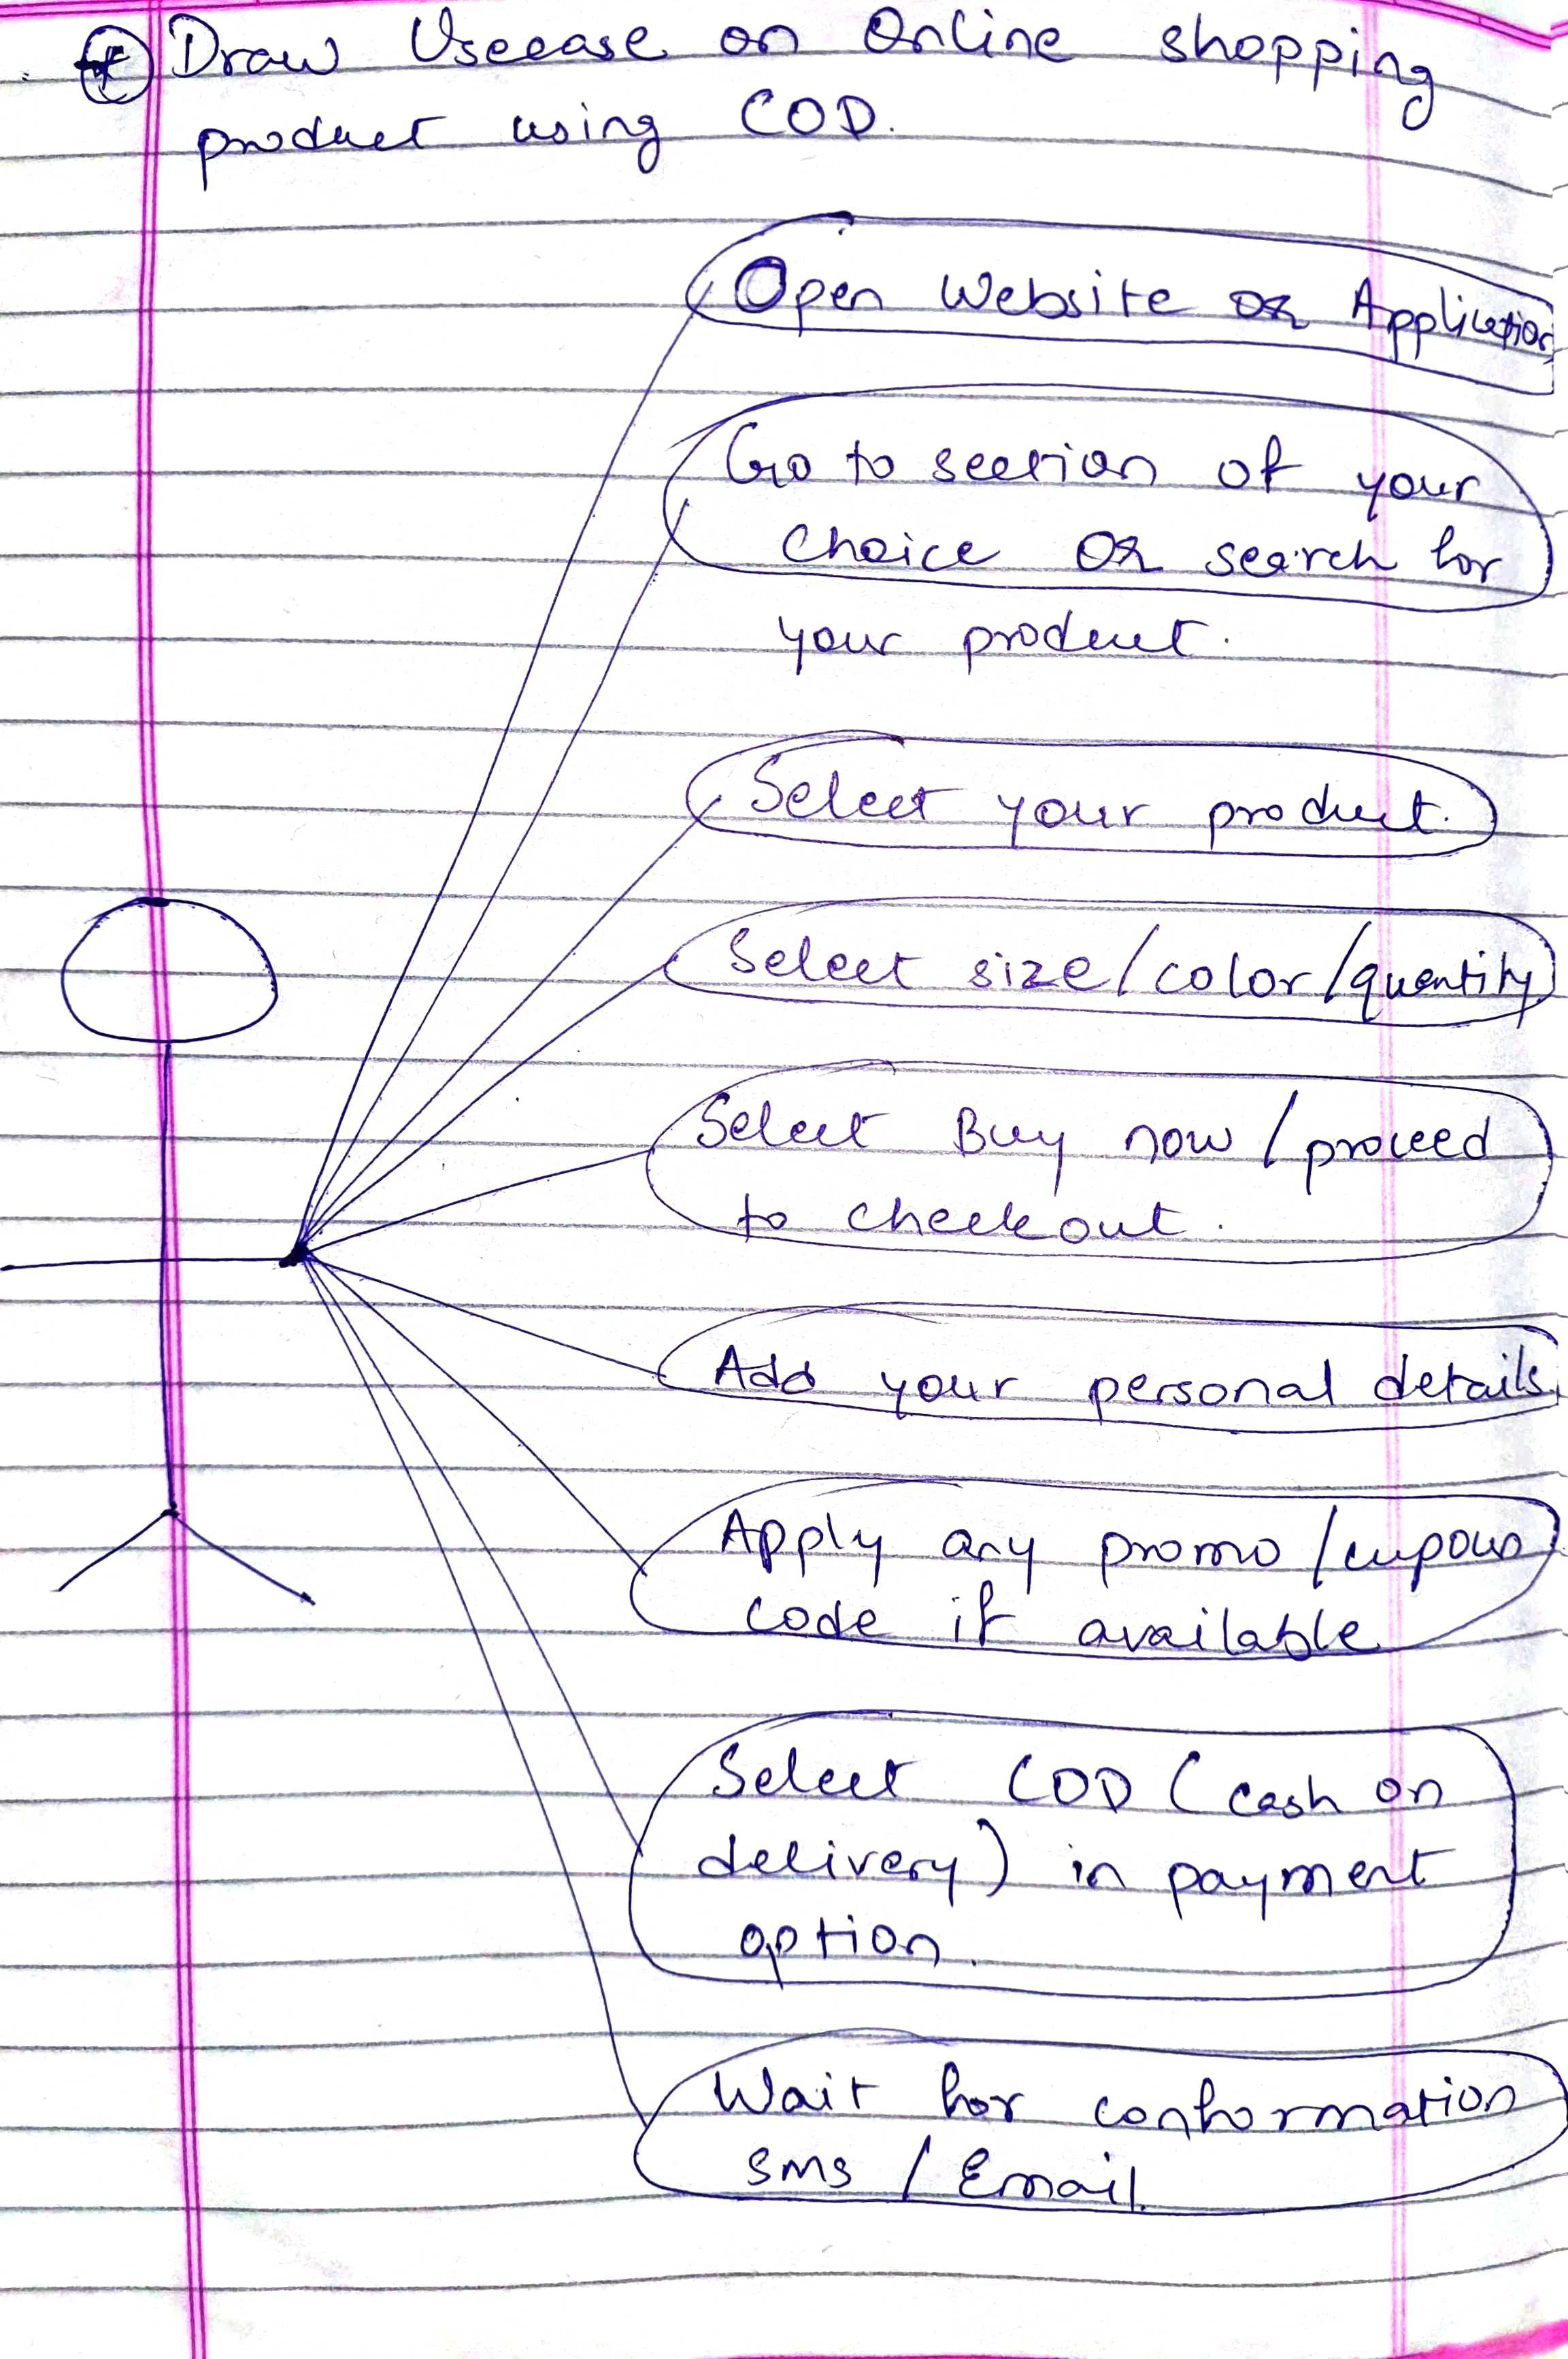 Draw Usecase on Online shopping
product using COD.
Open Website OR Application
Go to section of your
choice OR search for
your product.
Select your product.
Select size/color/quantity
Select Buy now/proceed
to checkout.
Add your personal details.
Apply any promo/cupoun
code if available
Select COD (cash on
delivery) in payment
option.
Wait for conformation
sms / Email.